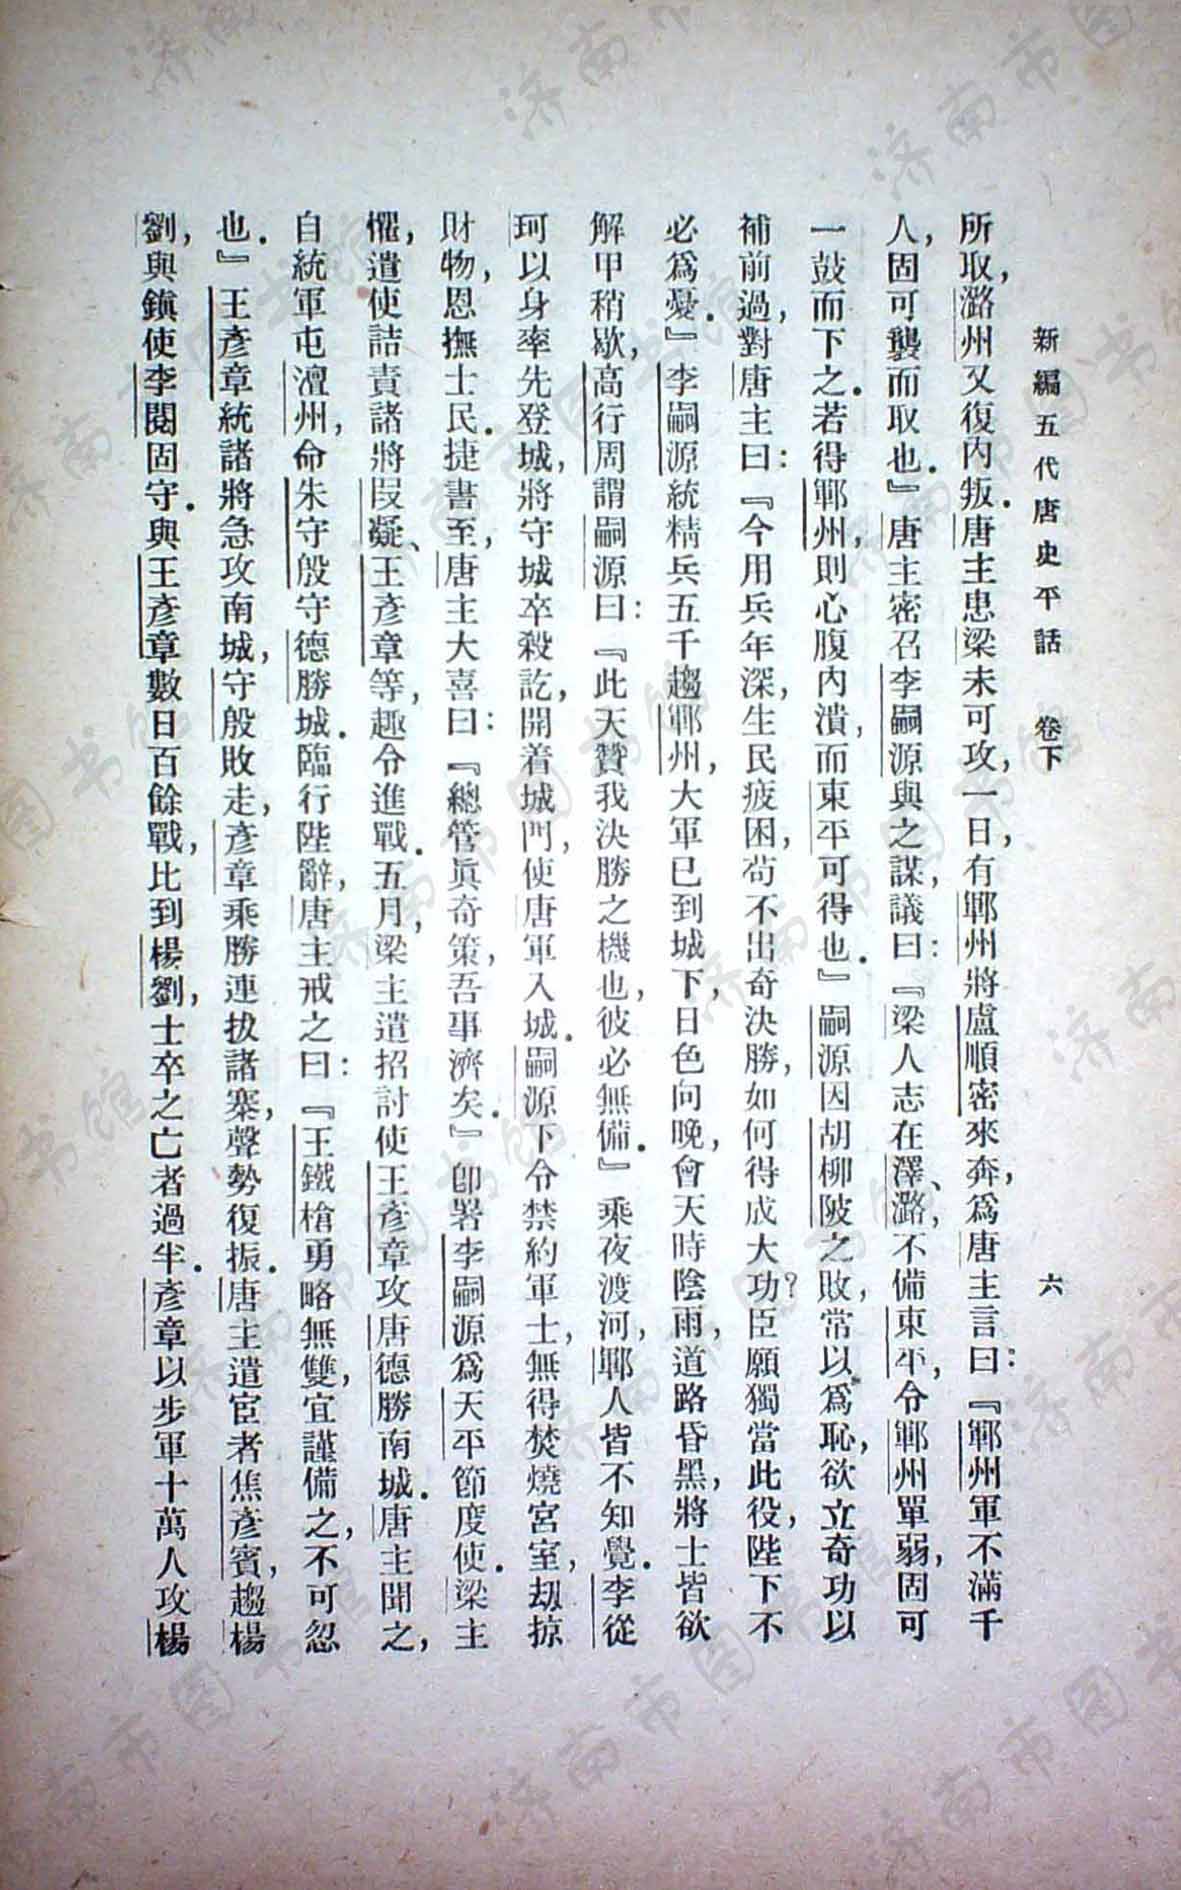 新編五代唐史平話　卷下　六
所取，潞州又復內叛．唐主患梁未可攻，一日，有鄆州將盧順密來奔，爲唐主言曰：『鄆州軍不滿千
人，固可襲而取也．』唐主密召李嗣源與之謀，議曰：『梁人志在澤、潞，不備東平，令鄆州單弱，固可
一鼓而下之．若得鄆州，則心腹內潰，而東平可得也．』嗣源因胡柳陂之敗，常以爲恥，欲立奇功以
補前過，對唐主曰：『今用兵年深，生民疲困，苟不出奇決勝，如何得成大功？臣願獨當此役，陛下不
必爲憂．』李嗣源統精兵五千趨鄆州，大軍已到城下，日色向晚，會天時陰雨，道路昏黑，將士皆欲
解甲稍歇，高行周謂嗣源曰：『此天贊我決勝之機也，彼必無備．』乘夜渡河，鄆人皆不知覺．李從
珂以身率先登城，將守城卒殺訖，開着城門，使唐軍入城．嗣源下令禁約軍士，無得焚燒宮室，刼掠
財物，恩撫士民．捷書至，唐主大喜曰：『總管眞奇策，吾事濟矣．』卽署李嗣源爲天平節度使．梁主
懼，遣使詰責諸將段凝、王彥章等，趣令進戰．五月，梁主遣招討使王彥章攻唐德勝南城．唐主聞之，
自統軍屯澶州，命朱守殷守德勝城．臨行陛辭，唐主戒之曰：『王鐵槍勇略無雙，宜謹備之，不可忽
也．』王彥章統諸將急攻南城，守殷敗走，彥章乘勝連拔諸寨，聲勢復振．唐主遣宦者焦彥賓，趨楊
劉，與鎭使李閱固守．與王彥章數日百餘戰，比到楊劉，士卒之亡者過半．彥章以步軍十萬人攻楊
济南市图书馆